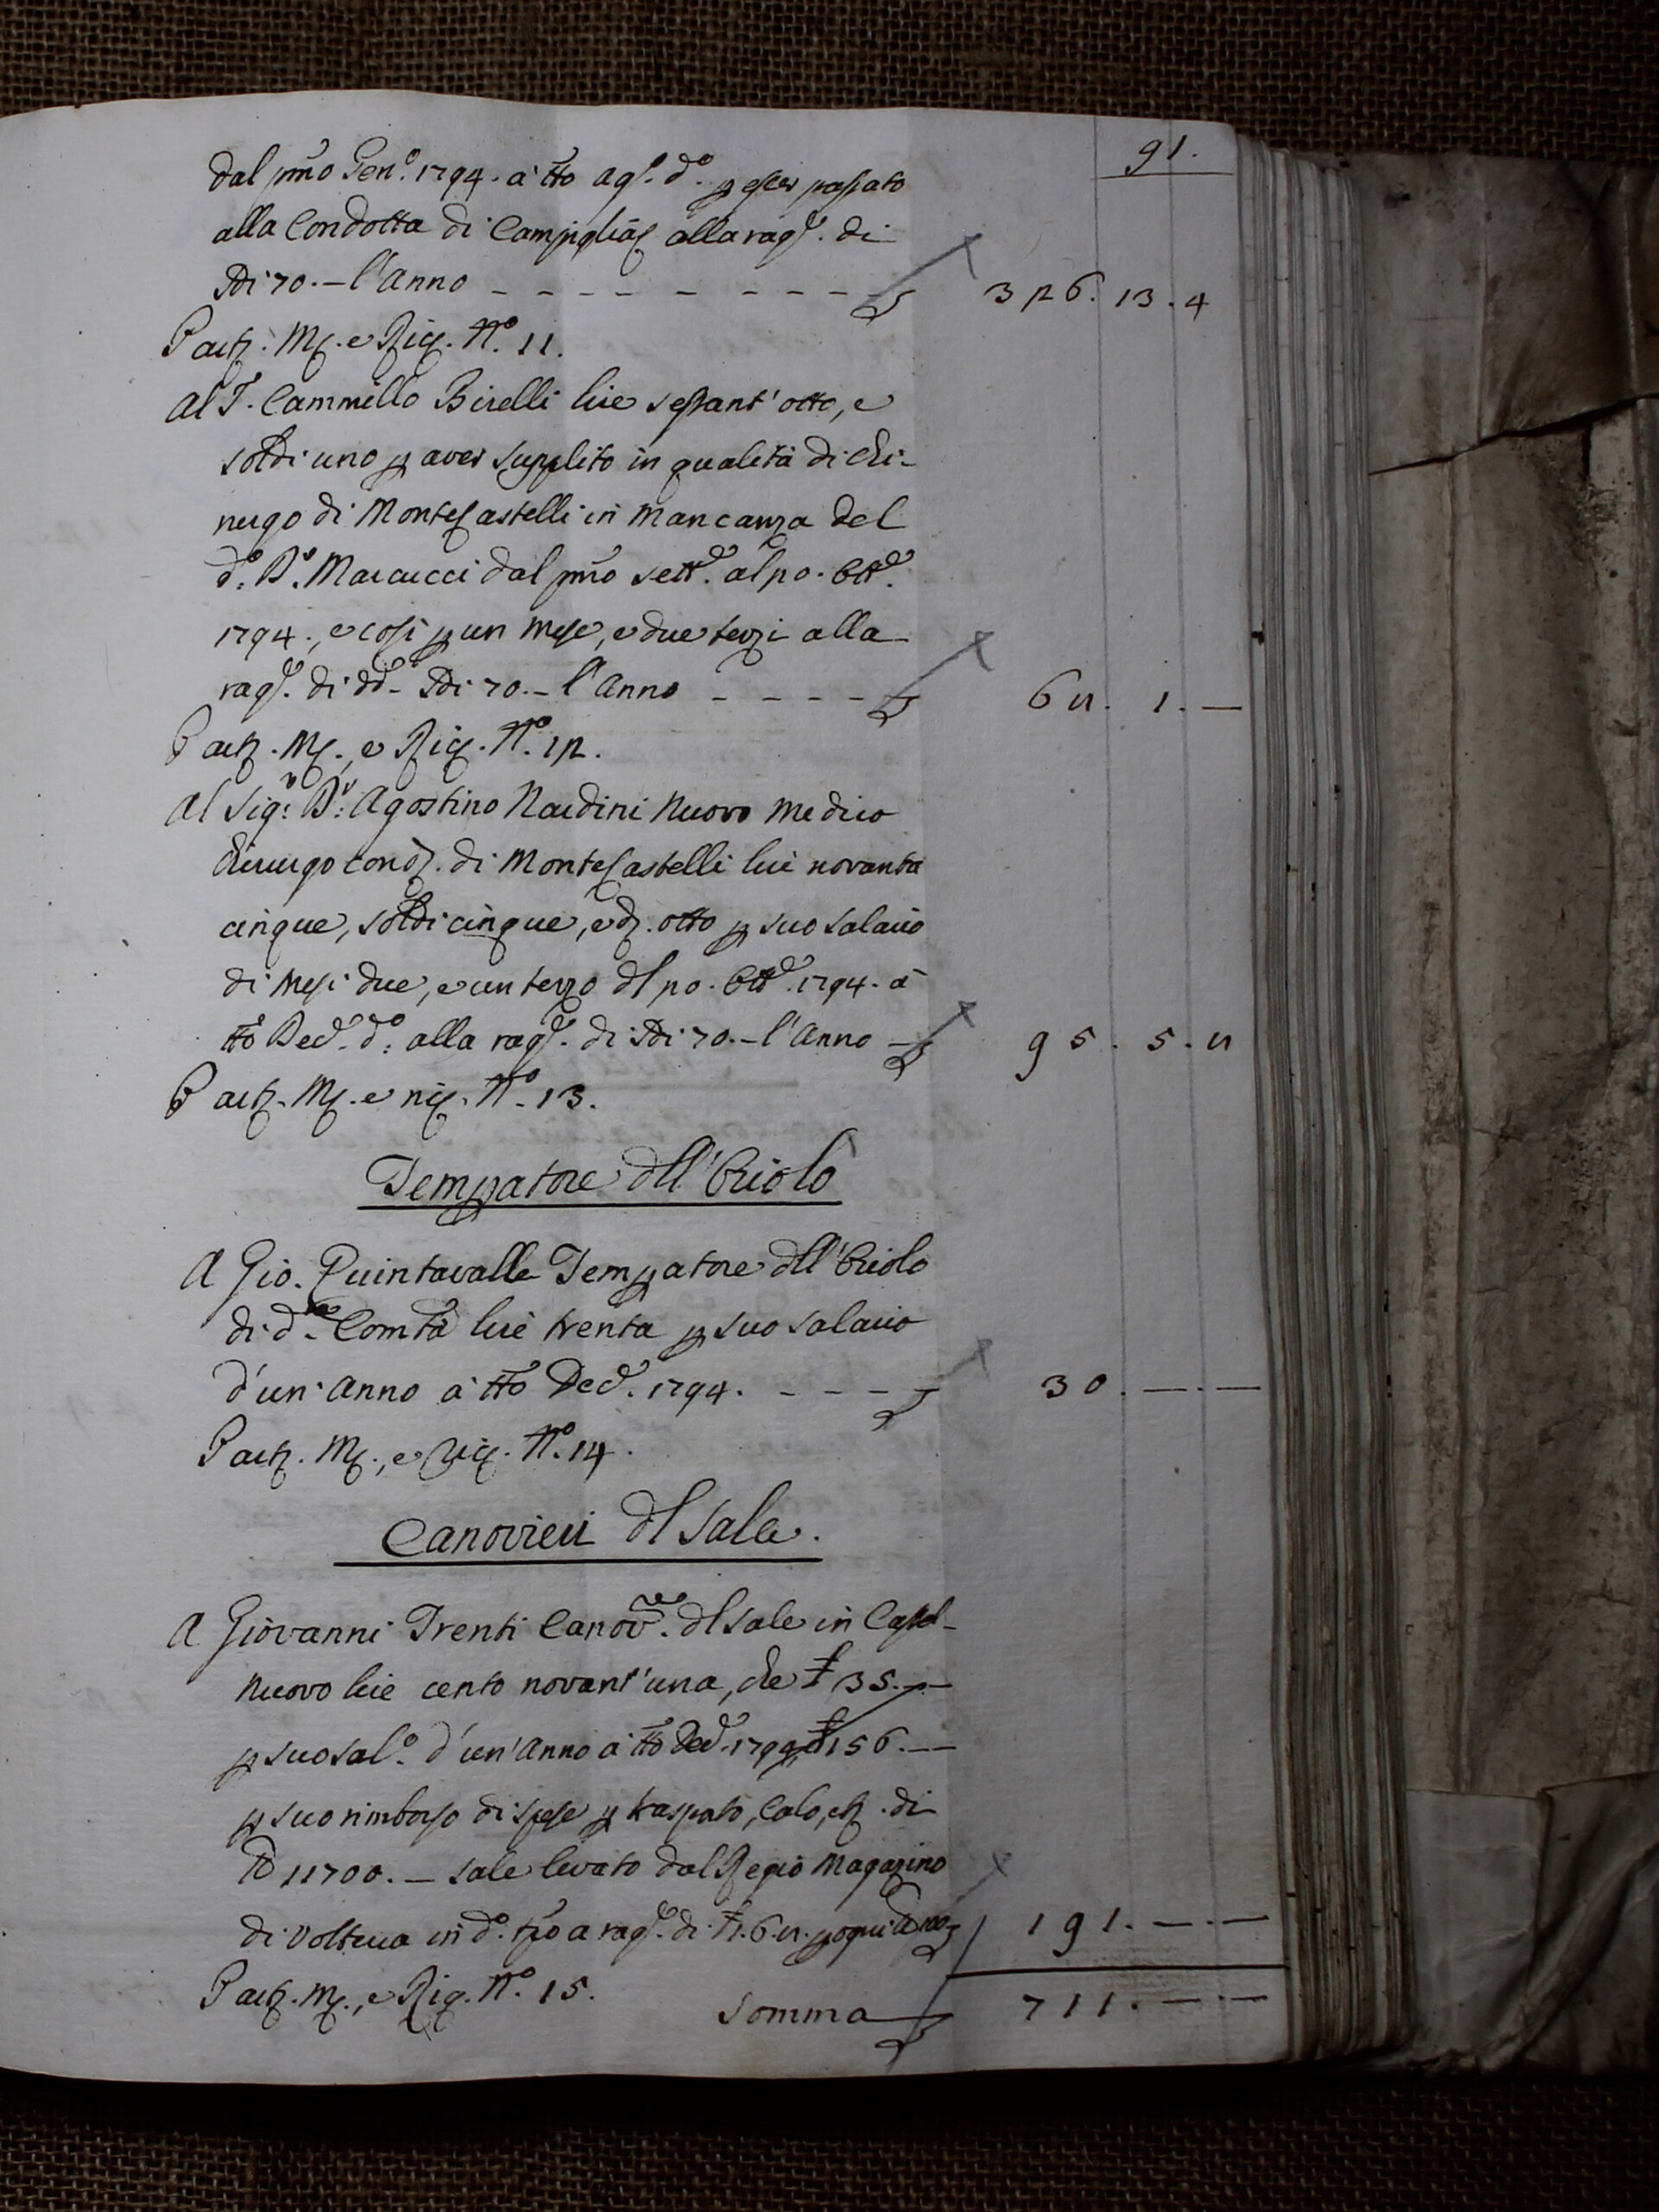 91.
dal pmo Gen.o 1794. a tto ag.o d.o p esser passato
alla Condotta di Campiglia alla rag.e di
di 70.– l'Anno – – – – – – – – 326. 13. 4
Part. M. e Rig. N.o 11.
Al S. Cammillo Birelli lire sessant'otto, e
soldi uno p aver supplito in qualità di Chi-
rurgo di MonteCastelli in mancanza del
d.o D.r Marcucci dal pmo Sett.e al po. Ott.e
1794., e così p un mese, e due terzi alla
rag.e di dd. di 70.– l'Anno – – – – 68. 1. –
Part. M., e Rig. N.o 12.
Al Sig.r D.r Agostino Nardini Nuovo Medico
Chirurgo cond. di MonteCastelli lire novanta
cinque, soldi cinque, e d. otto p suo salario
di mesi due, e un terzo dl po. Ott.e 1794. a
tto Dec.e d.o alla rag.e di di 70.– l'Anno – 95. 5. 8
Part. M. e rig. N.o 13.
Temperatore dll'Oriolo
A Gio. Quintavalle Temperatore dll'Oriolo
di d.a Comtà lire trenta p suo salario
d'un'Anno a tto Dec.e 1794. – – – – 30. –. –
Part. M., e Rig. N.o 14.
Canovieri dl Sale.
A Giovanni Trenti Canov.re dl Sale in Castel-
nuovo lire cento novant'una, che £ 35.–.–
p suo sal.o d'un'Anno a tto Dec.e 1794, e £ 156.–.–
p suo rimborso di spese p trasporto, Calo, etc. di
11700.– sale levato dal Regio Magazzino
di Volterra in d.o tpo a rag.e di £ 1. 6. 8. p ogni 100 191. –. –
Part. M., e Rig. N.o 15.
Somma 711. –. –